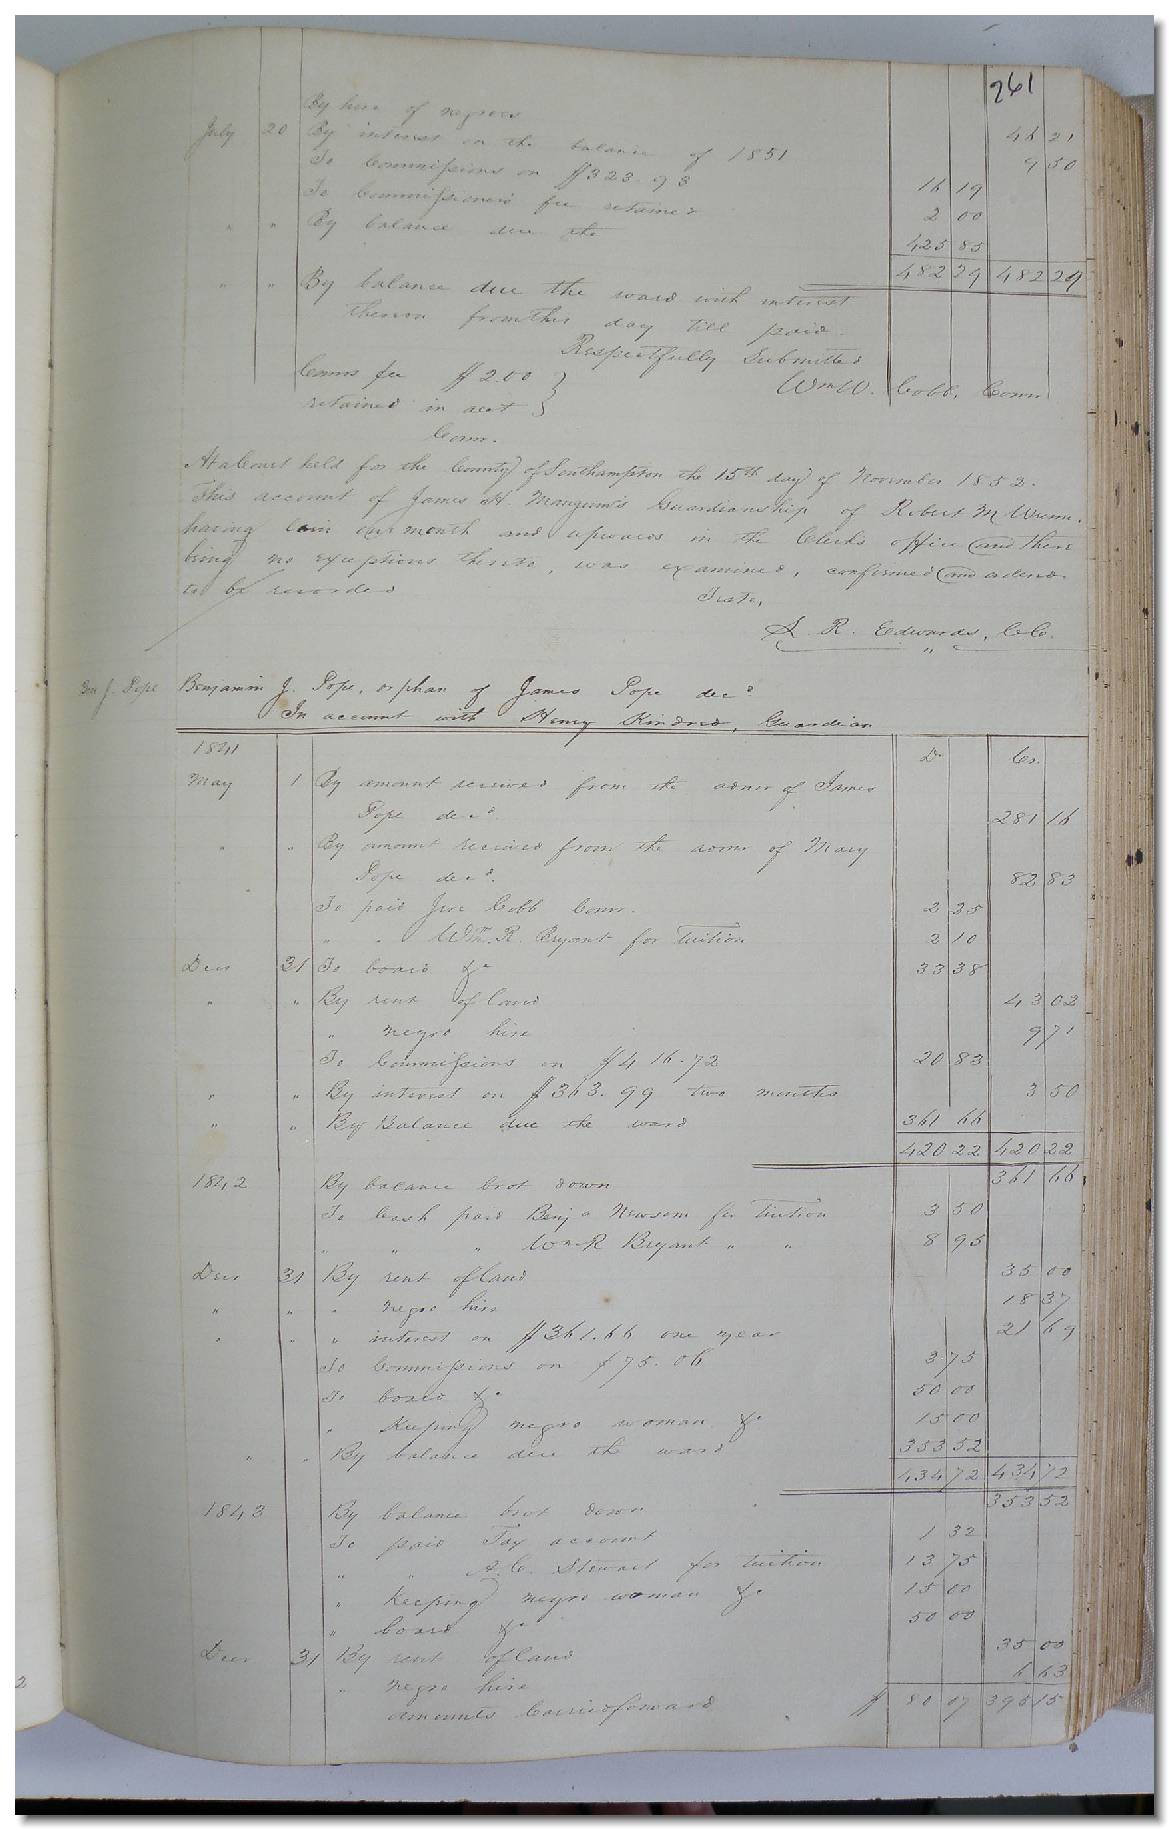 261
By hire of negroes 46 21
July 20 By interest on the balance of 1851 9 50
To Commissions on $323.93 16 19
To Commissioners fee retained 2 00
" " By balance due the 425 85
482 29 482 29
" " By balance due the ward with interest
thereon from this day till paid.
Respectfully Submitted
Comrs fee $2.00 } WmW. Cobb, Comr
retained in acct }
Comr.
At a Court held for the County of Southampton the 15th day of November 1852.
This account of James H. Mangum's Guardianship of Robert M Wrenn.
having lain one month and upwards in the Clerk's office and there
being no exceptions thereto, was examined, confirmed and ordered
to be recorded
Teste,
L. R. Edwards, C.C.
Ben J. Pope Benjamin J. Pope, orphan of James Pope decd.
In account with Henry Kindred, Guardian
1841 Dr Cr.
May 1 By amount received from the admr of James
Pope decd. 281 16
" " By amount received from the admr of Mary
Pope decd. 82 83
To paid Jere Cobb Comr. 2 35
" " Wm. R. Bryant for Tuition 2 10
Decr 31 To board &c 33 38
" " By rent of land 43 02
" negro hire 9 71
To Commissions on $416.72 20 83
" " By interest on $363.99 two months 3 50
" " By Balance due the ward 361 66
420 22 420 22
1842 By balance brot down 361 66
To Cash paid Benja Newsom for Tuition 3 50
" " " Wm R Bryant " " 8 95
Decr 31 By rent of land 35 00
" " " negro hire 18 37
" " " interest on $361.66 one year 21 69
To Commissions on $75.06 3 75
To board &c 50 00
" Keeping negro woman &c 15 00
" " By balance due the ward 353 52
434 72 434 72
1843 By balance brot down 353 52
To paid Tax account 1 32
" " A. C. Stewart for tuition 13 75
" Keeping negro woman &c 15 00
" board &c 50 00
Decr 31 By rent of land 35 00
" negro hire 6 63
amounts Carried forward $ 80 07 395 15